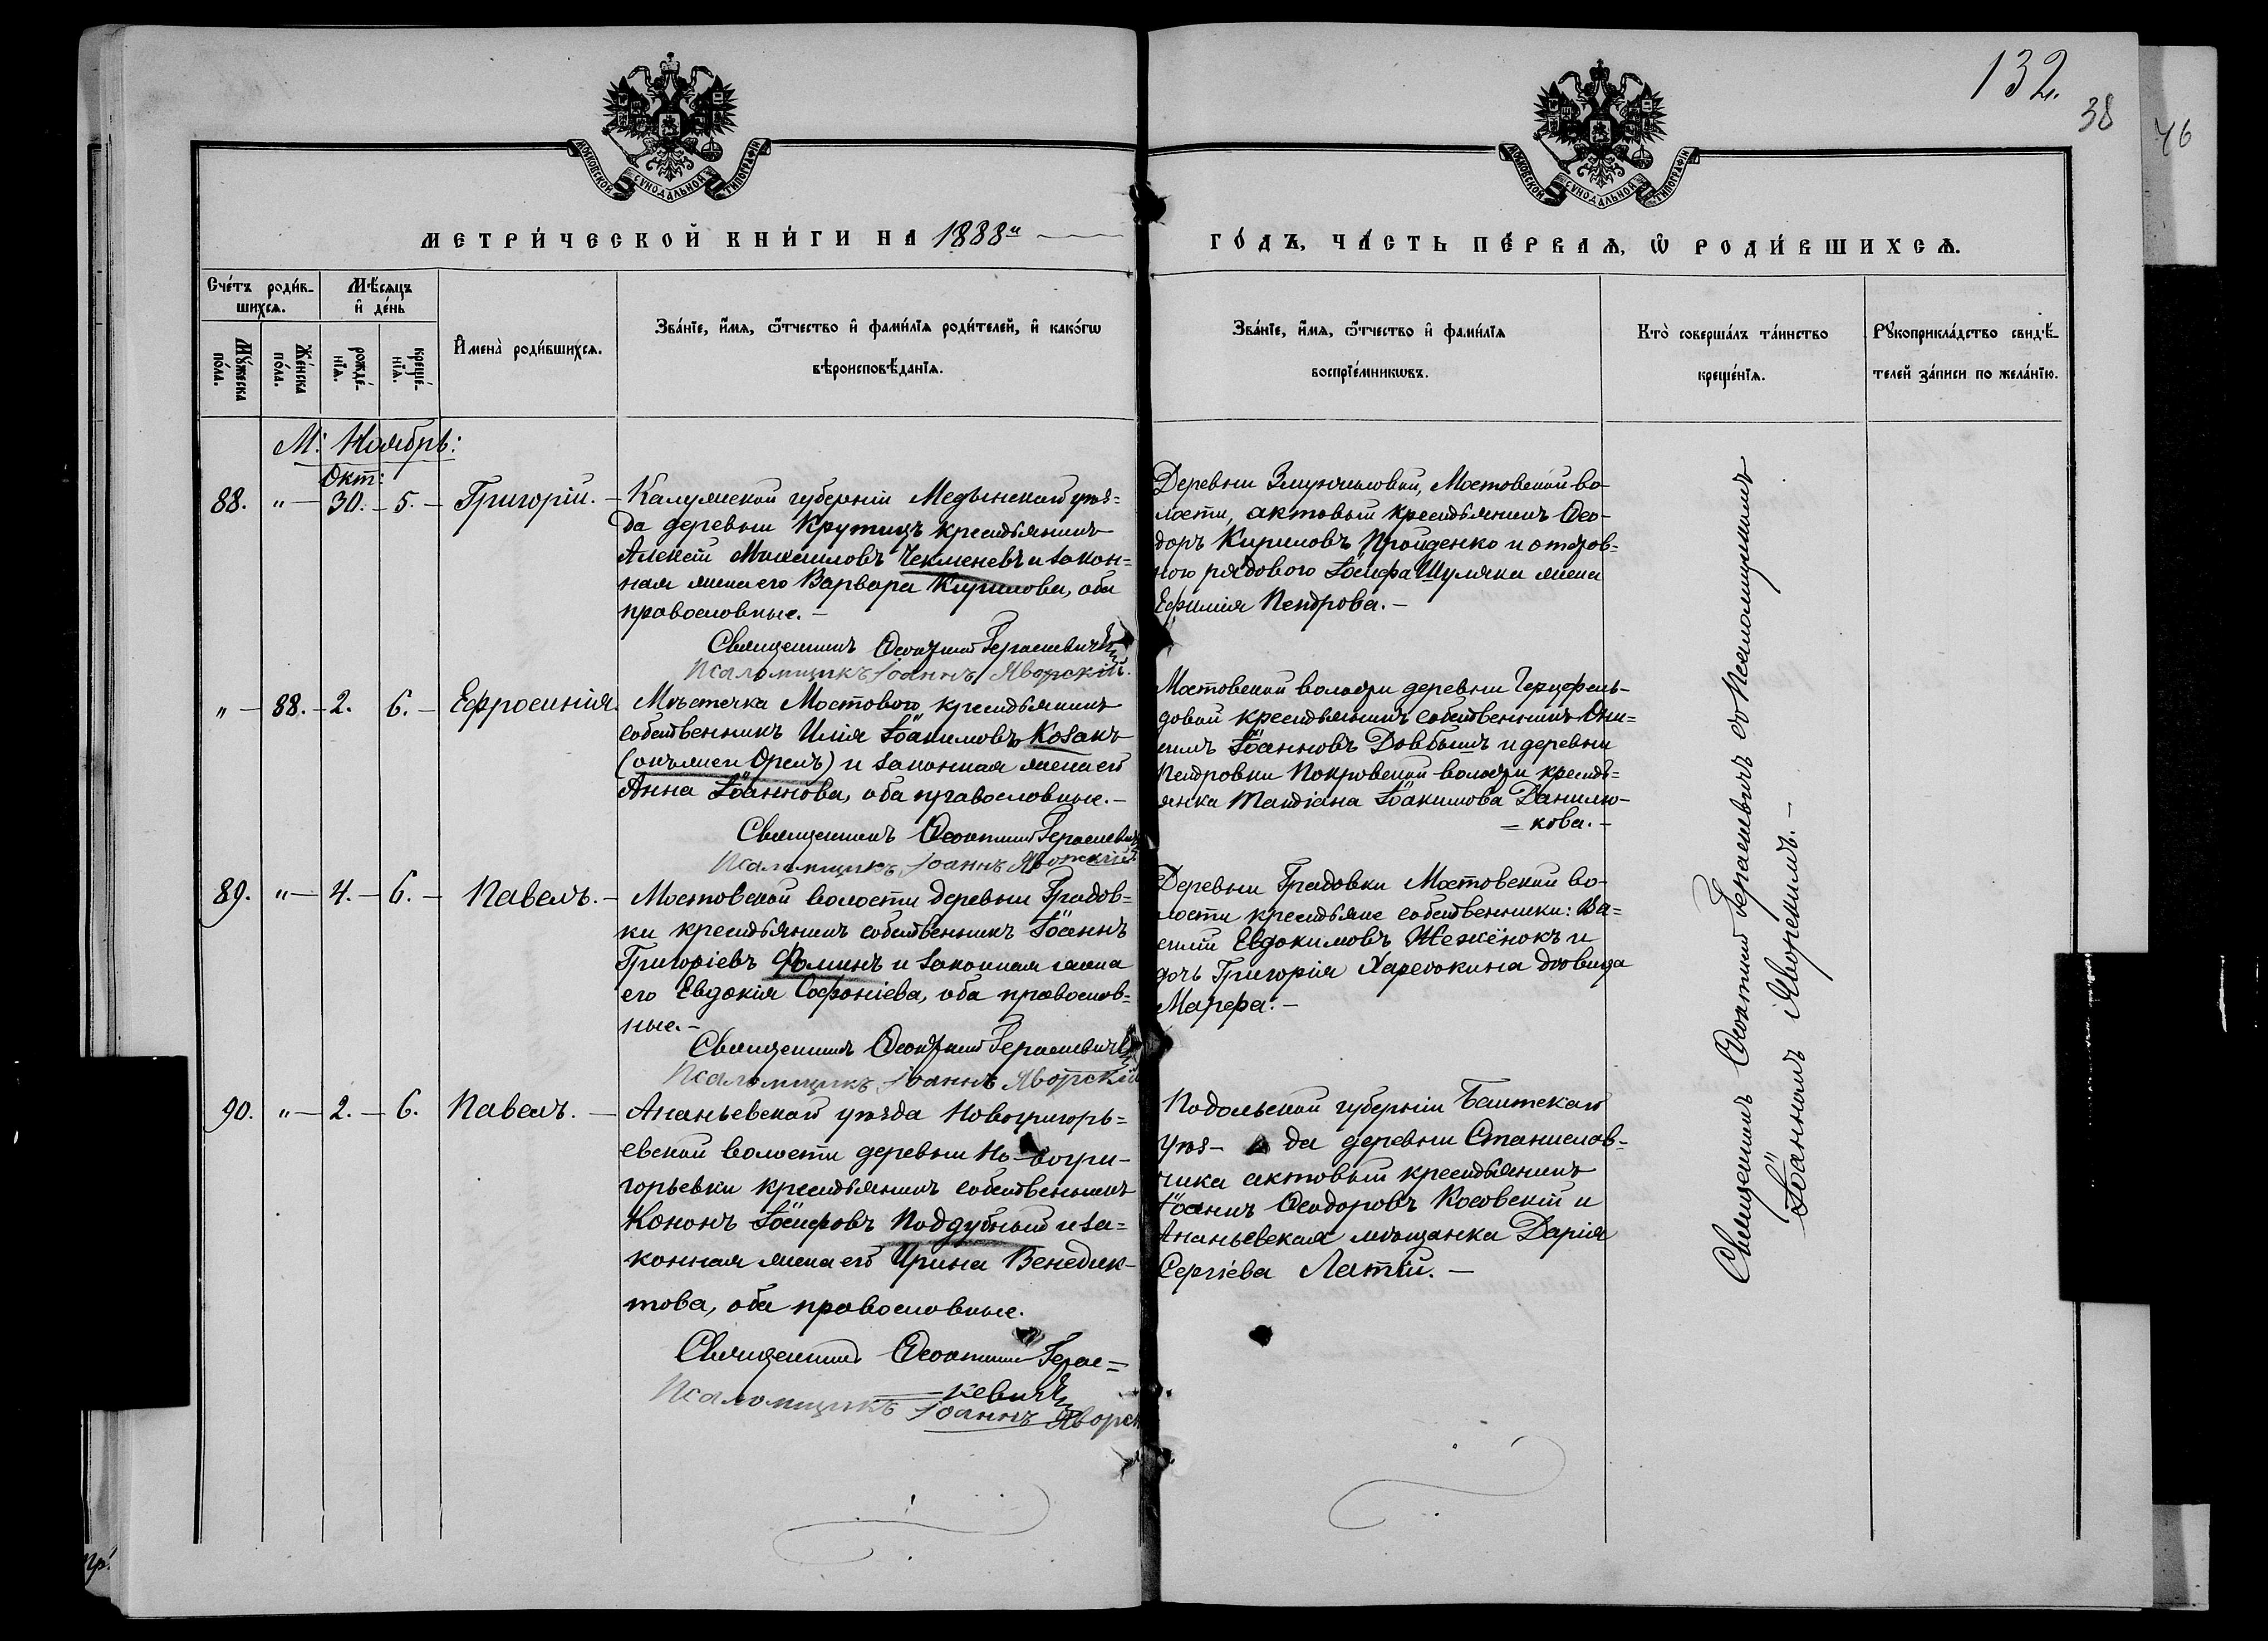 132.
38
46
МОСКОВСКОЙ СѴНОДАЛЬНОЙ ТИПОГРАФІИ
МОСКОВСКОЙ СѴНОДАЛЬНОЙ ТИПОГРАФІИ
МЕТРИ́ЧЕСКОЙ КНИ́ГИ НА 1888й
ГО́ДЪ, ЧА́СТЬ ПЕ́РВАѦ, Ѽ РОДИ́ВШИХСѦ.
Сче́тъ роди́в-
шихсѧ.
Мѣ́сѧцъ
и҆ де́нь
Мꙋ́жеска
по́ла.
Же́нска
по́ла.
рожде́-
нїѧ.
креще́-
нїѧ.
И҆мена̀ роди́вшихсѧ.
Зва́нїе, и҆́мѧ, ѻ҆́тчество и҆ фами́лїѧ роди́телей, и҆ како́гѡ
вѣроисповѣ́данїѧ.
Зва́нїе, и҆́мѧ, ѻ҆́тчество и҆ фами́лїѧ
воспрїе́мникѡвъ.
Кто̀ соверша́лъ та́инство
креще́нїѧ.
Рꙋкоприкла́дство свидѣ́-
телей за́писи по жела́нїю.
М: Ноябрь:
Окт:
88. " — 30. — 5. — Григорій. —
Калужской губерніи Медынскаго уѣз=
да деревни Крутицъ крестьянинъ
Алексѣй Михаиловъ Чекменевъ и закон=
ная жена его Варвара Кирилова, оба
православные. —
Священникъ Ѳеоктистъ Гераскевичъ
Псаломщикъ Іоаннъ Яворскій.
Деревни Змунчиловой, Мостовской во-
лости, актовый крестьянинъ Ѳео-
доръ Кириловъ Проценко и
рядового Іосифа Шуляка жена
Ефимія Петрова. —
" — 88. — 2. 6. — Ефросинія.
Мѣстечка Мостового крестьянинъ
собственникъ Илія Іоакимовъ Козакъ
(онъ же и Орелъ) и законная жена его
Анна Іоаннова, оба православные. —
Священникъ Ѳеоктистъ Гераскевичъ
Псаломщикъ Іоаннъ Яворскій
Мостовской волости деревни Герцефель-
довой крестьянинъ собственникъ Они=
симъ Іоанновъ Довбышъ и деревни
Петровки Покровской волости кресть=
янка Татіана Іоакимова Данилю-
= кова. —
89. " — 4. — 6. — Павелъ. —
Мостовской волости деревни Градов=
ки крестьянинъ собственникъ Іоаннъ
Григоріевъ Фоминъ и законная жена
его Евдокія Софоніева, оба православ=
ные. —
Священникъ Ѳеоктистъ Гераскевичъ
Псаломщикъ Іоаннъ Яворскій
Деревни Градовки Мостовской во-
лости крестьяне собственники: Ва=
силій Евдокимовъ Жежёнокъ и
дочь Григорія девица
Марфа: —
90. " — 2. — 6. Павелъ. —
Ананьевскаго уѣзда Новогригорь=
евской волости деревни Но-вогри-
горьевки крестьянинъ собственникъ
Кононъ Іосифовъ Поддубный и за=
конная жена его Ирина Венедик-
това, оба православные.
Священникъ Ѳеоктистъ Герас=
= кевичъ
Псаломщикъ Іоаннъ Яворск
Подольской губерніи Балтскаго
уѣз- да деревни Станислав=
чика актовый крестьянинъ
Іоаннъ Ѳеодоровъ Косовскій и
Ананьевская мѣщанка Дарія
Сергіева Латій. —
Священникъ Ѳеоктистъ Гераскевичъ съ Псаломщикомъ
Іоанномъ Яворскимъ. —